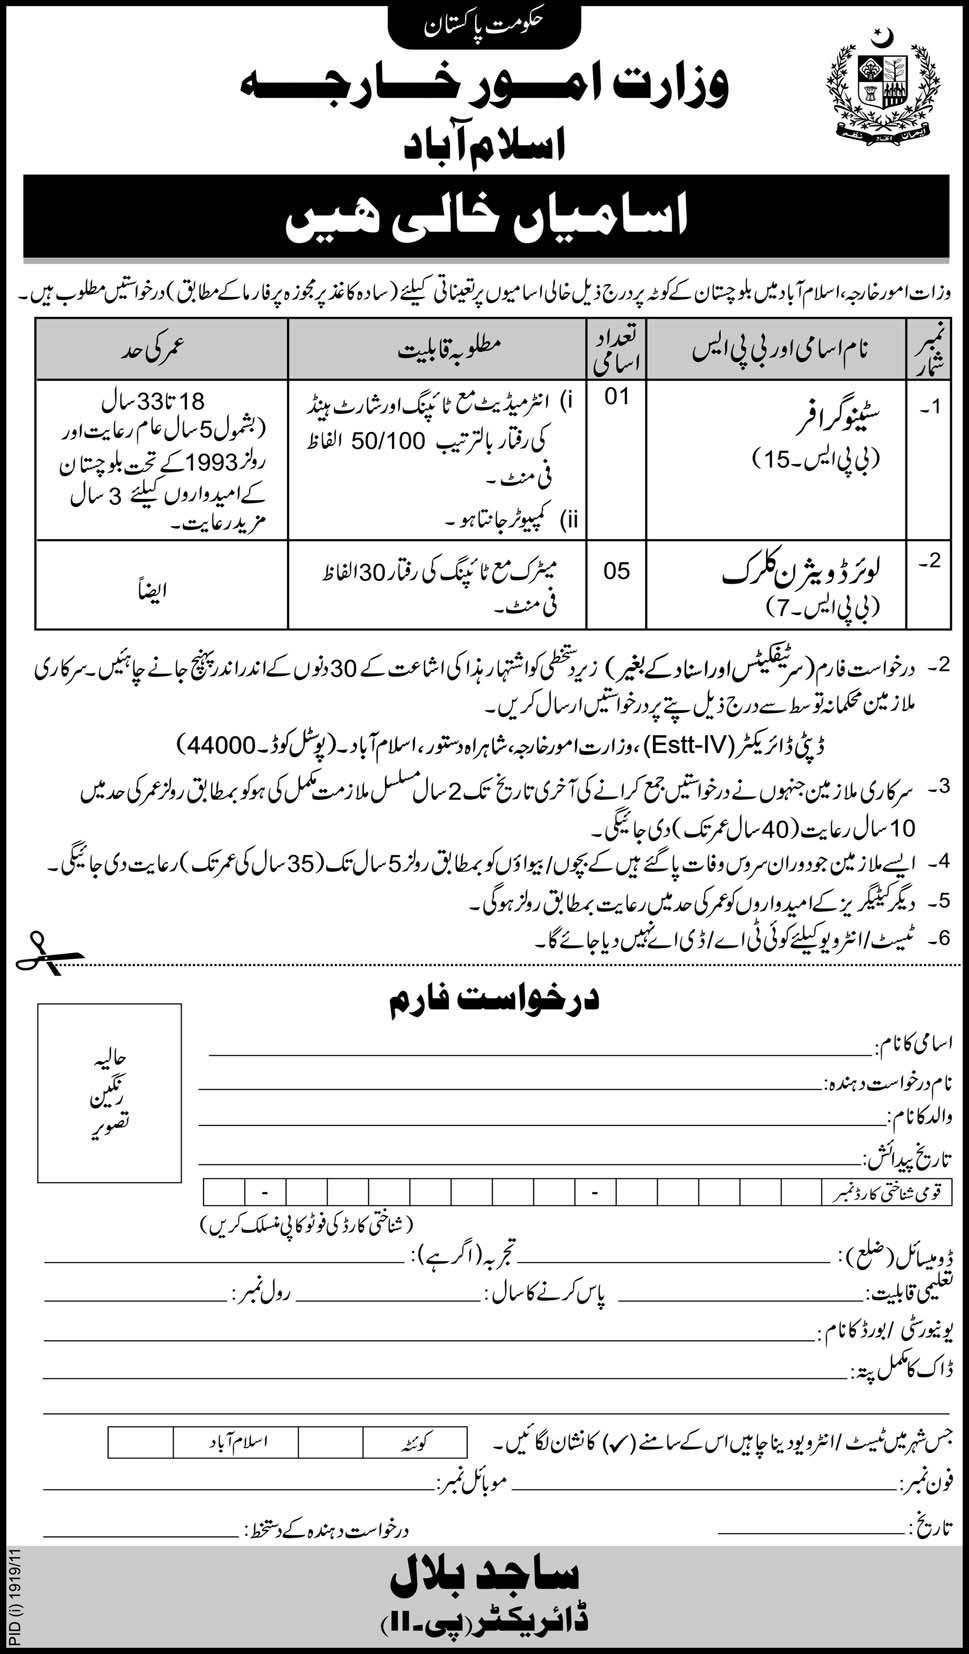 حکومت پاکستان
وزارت امور خارجہ
اسلام آباد
ایمان اتحاد نظم
اسامیاں خالی ہیں
وزات امور خارجہ، اسلام آباد میں بلوچستان کے کوٹہ پر درج ذیل خالی اسامیوں پر تعیناتی کیلئے (سادہ کاغذ پر مجوزہ پرفارما کے مطابق) درخواستیں مطلوب ہیں۔
نمبر شمار
نام اسامی اور بی پی ایس
تعداد اسامی
مطلوبہ قابلیت
عمر کی حد
1۔
سٹینوگرافر
(بی پی ایس۔15)
01
i) انٹرمیڈیٹ مع ٹائپنگ اور شارٹ ہینڈ
کی رفتار بالترتیب 50/100 الفاظ
فی منٹ۔
ii) کمپیوٹر جانتا ہو۔
18 تا 33 سال
(بشمول 5 سال عام رعایت اور
رولز 1993 کے تحت بلوچستان
کے امیدواروں کیلئے 3 سال
مزید رعایت۔
2۔
لوئر ڈویژن کلرک
(بی پی ایس۔7)
05
میٹرک مع ٹائپنگ کی رفتار 30 الفاظ
فی منٹ۔
ایضاً
2- درخواست فارم (سرٹیفکیٹس اور اسناد کے بغیر) زیر دستخطی کو اشتہار ہذا کی اشاعت کے 30 دنوں کے اندر اندر پہنچ جانے چاہئیں۔ سرکاری
ملازمین محکمانہ توسط سے درج ذیل پتے پر درخواستیں ارسال کریں۔
ڈپٹی ڈائریکٹر (Estt-IV)، وزارت امور خارجہ، شاہراہ دستور، اسلام آباد۔ (پوسٹل کوڈ۔44000)
3- سرکاری ملازمین جنہوں نے درخواستیں جمع کرانے کی آخری تاریخ تک 2 سال مسلسل ملازمت مکمل کی ہو کو بمطابق رولز عمر کی حد میں
10 سال رعایت (40 سال عمر تک) دی جائیگی۔
4- ایسے ملازمین جو دوران سروس وفات پا گئے ہیں کے بچوں/بیواؤں کو بمطابق رولز 5 سال تک (35 سال کی عمر تک) رعایت دی جائیگی۔
5- دیگر کیٹیگریز کے امیدواروں کو عمر کی حد میں رعایت بمطابق رولز ہو گی۔
6- ٹیسٹ/انٹرویو کیلئے کوئی ٹی اے/ڈی اے نہیں دیا جائے گا۔
درخواست فارم
حالیہ
رنگین
تصویر
اسامی کا نام:
نام درخواست دہندہ:
والد کا نام:
تاریخ پیدائش:
قومی شناختی کارڈ نمبر - -
(شناختی کارڈ کی فوٹو کاپی منسلک کریں)
ڈومیسائل (ضلع): تجربہ (اگر ہے):
تعلیمی قابلیت: پاس کرنے کا سال: رول نمبر:
یونیورسٹی/بورڈ کا نام:
ڈاک کا مکمل پتہ:
جس شہر میں ٹیسٹ/انٹرویو دینا چاہیں اس کے سامنے (✓) کا نشان لگائیں۔ کوئٹہ اسلام آباد
فون نمبر: موبائل نمبر:
تاریخ: درخواست دہندہ کے دستخط:
ساجد بلال
ڈائریکٹر (پی۔II)
PID (i) 1919/11